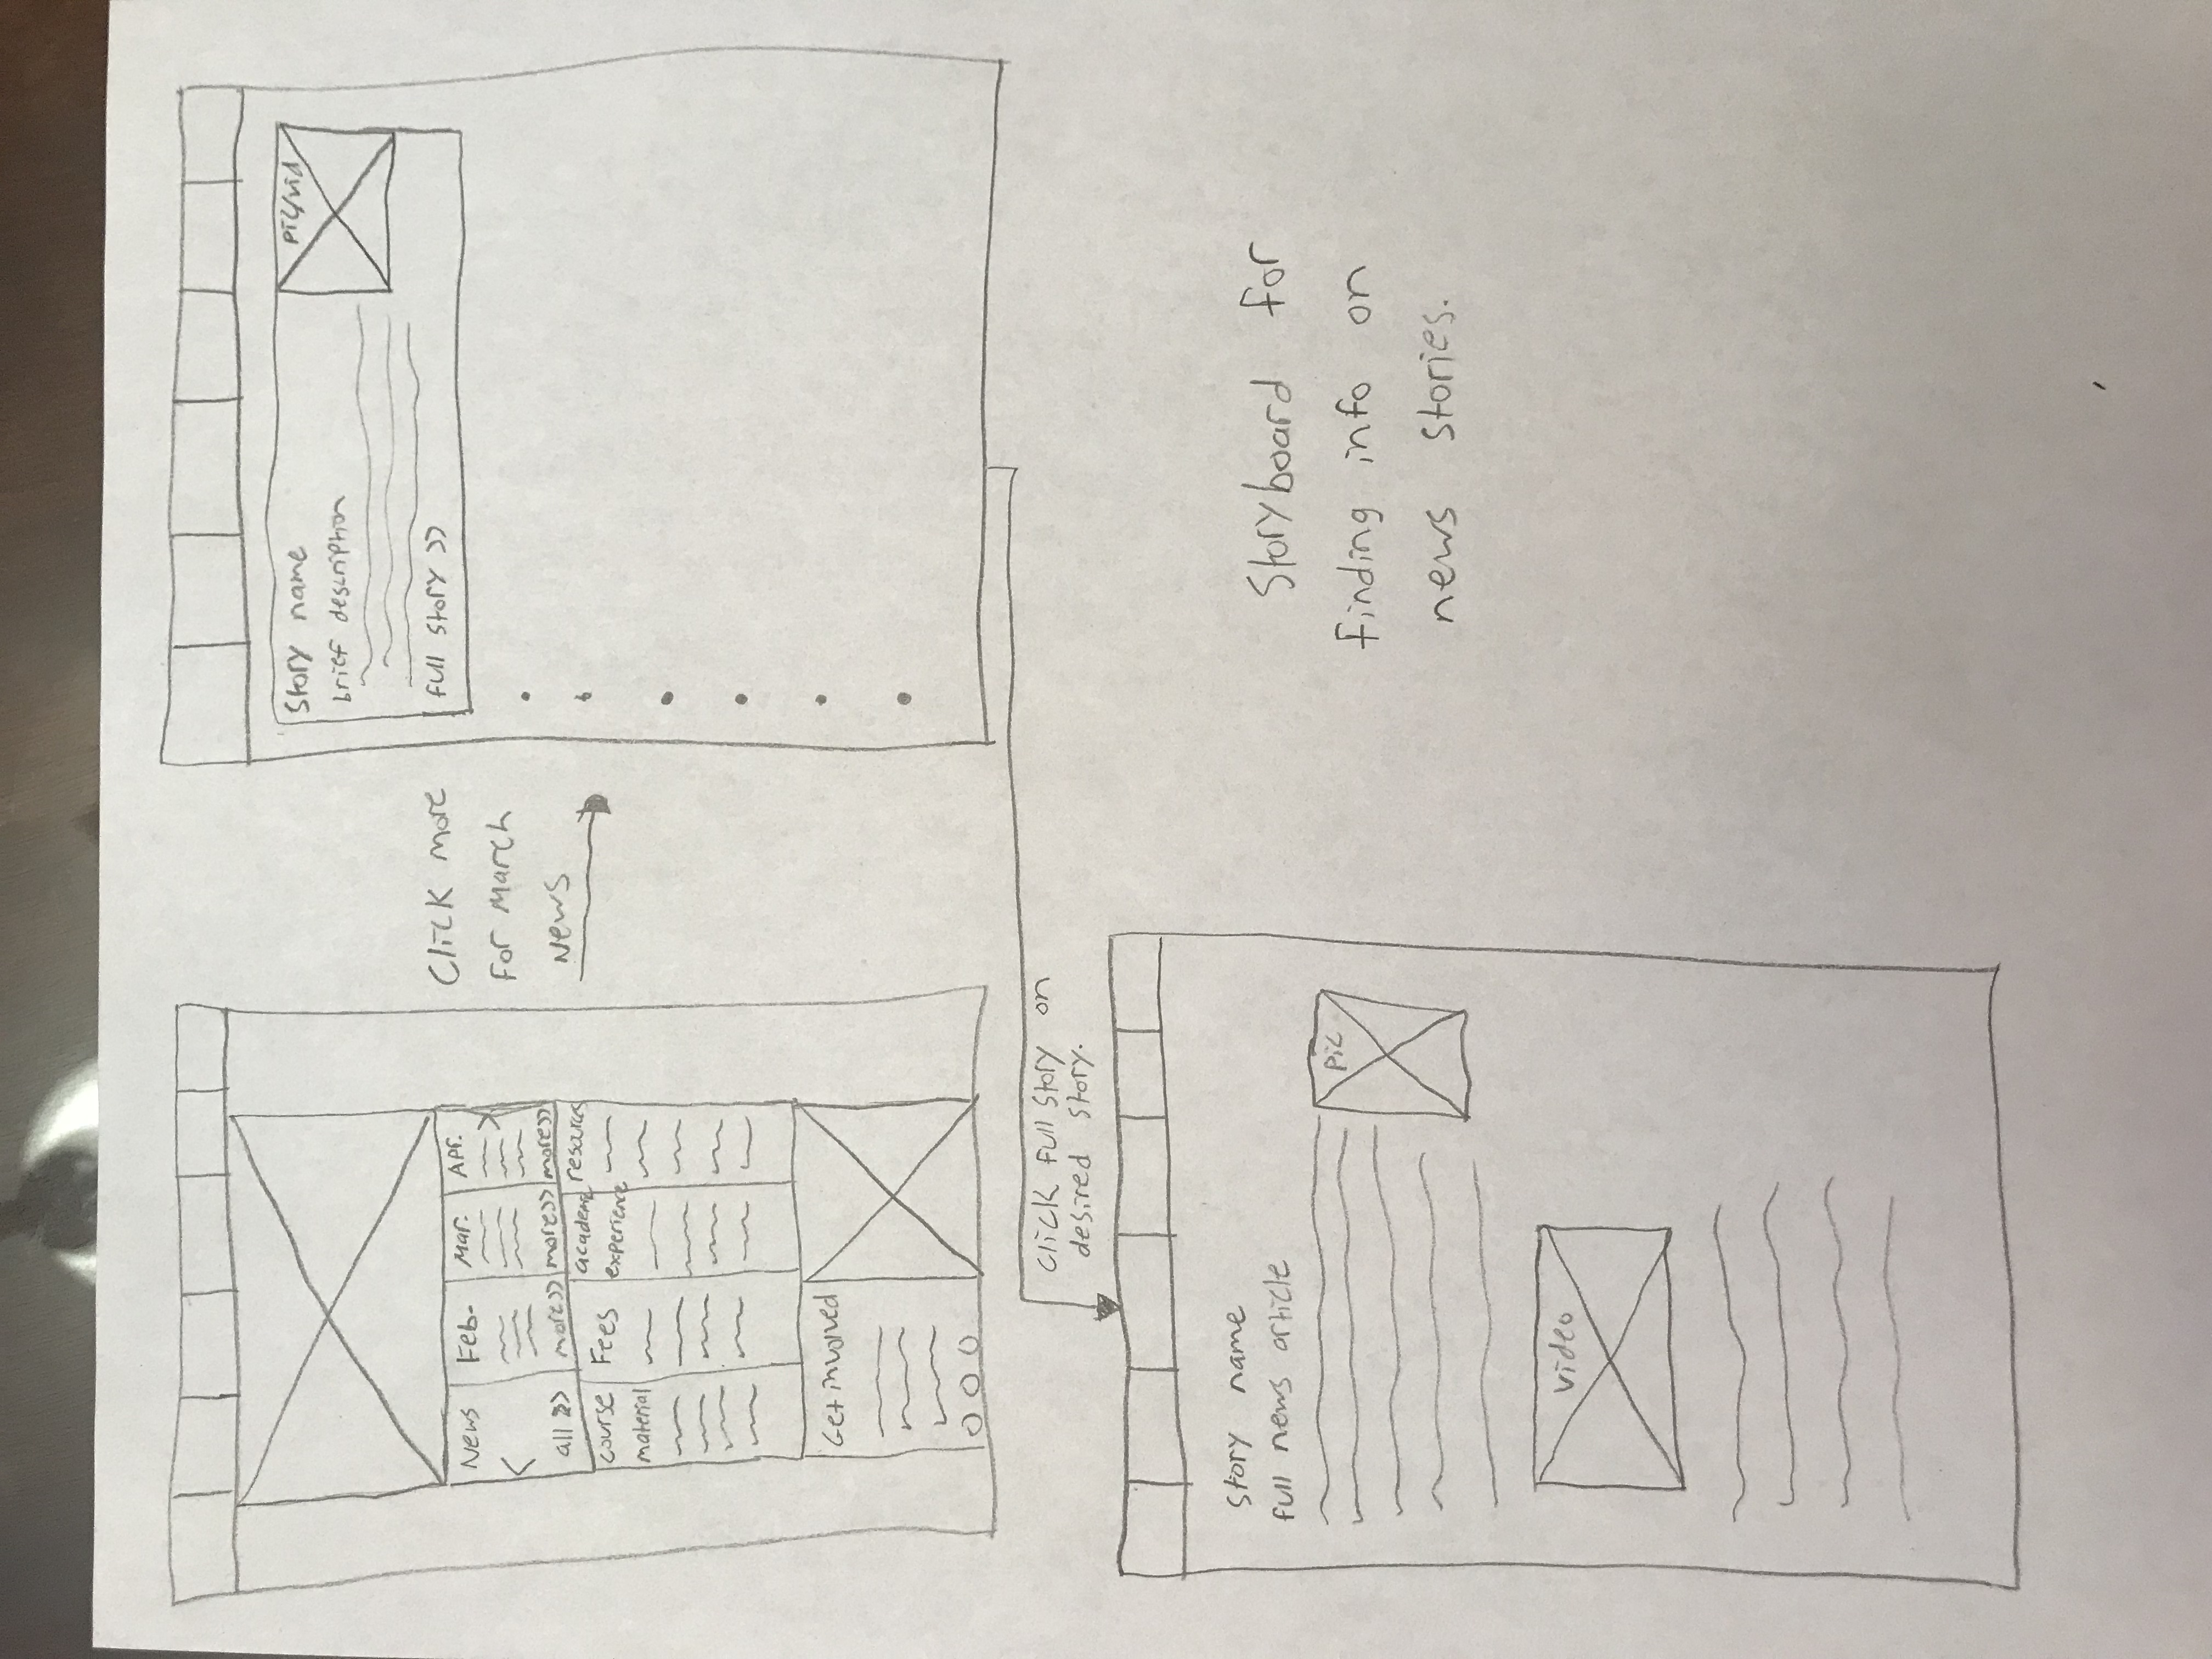 News
all >>
Feb.
more>>
Mar.
more>>
Apr.
more>>
course
material
Fees
academic
experience
resources
Get involved
Click more
for March
News
Story name
brief description
full story >>
pic/vid
click full story on
desired story.
story name
full news article
pic
video
Storyboard for
finding info on
news stories.